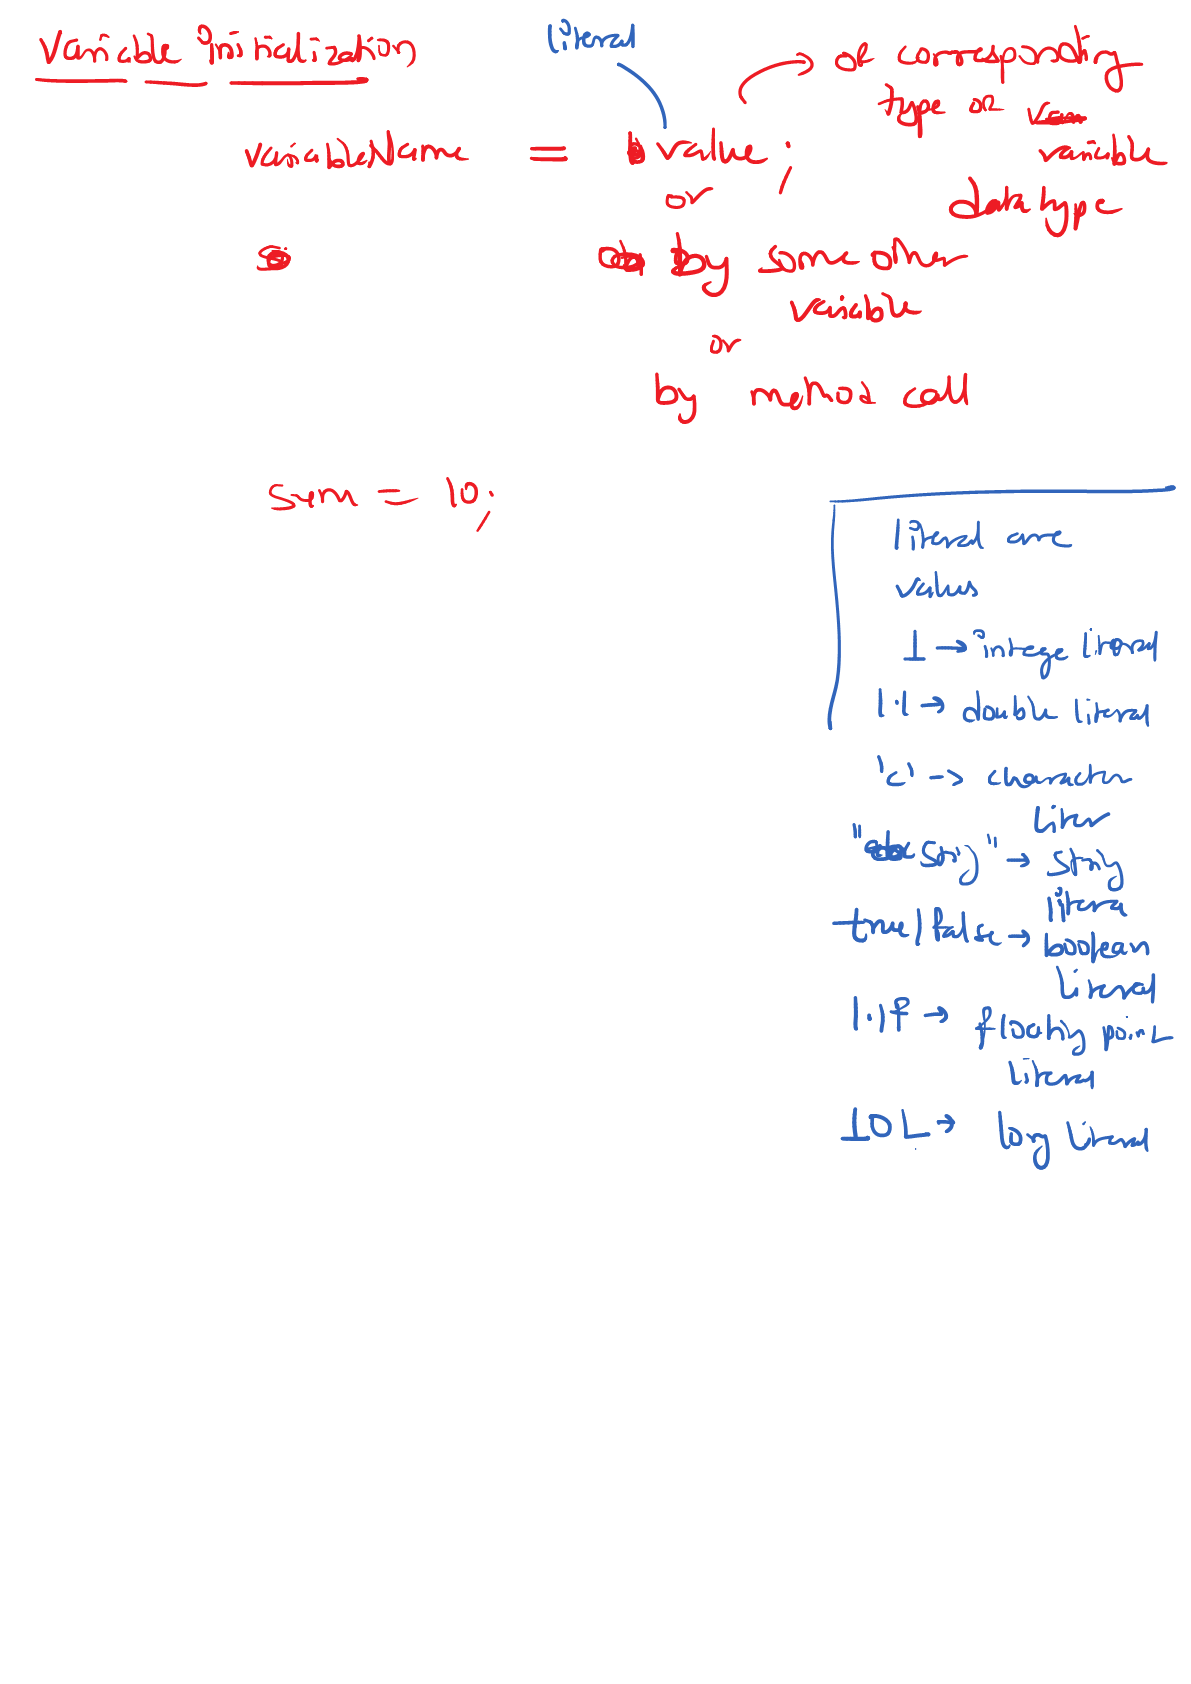 Variable Initialization
literal
of corresponding
type or
variable
datatype
variableName = value;
or
by some other
variable
or
by method call
sum = 10;
literal are
values
1 → intege literal
1.1 → double literal
'c' -> character
liter
"string" → string
litera
true/false → boolean
literal
1.1f → floating point
literal
10L → long literal